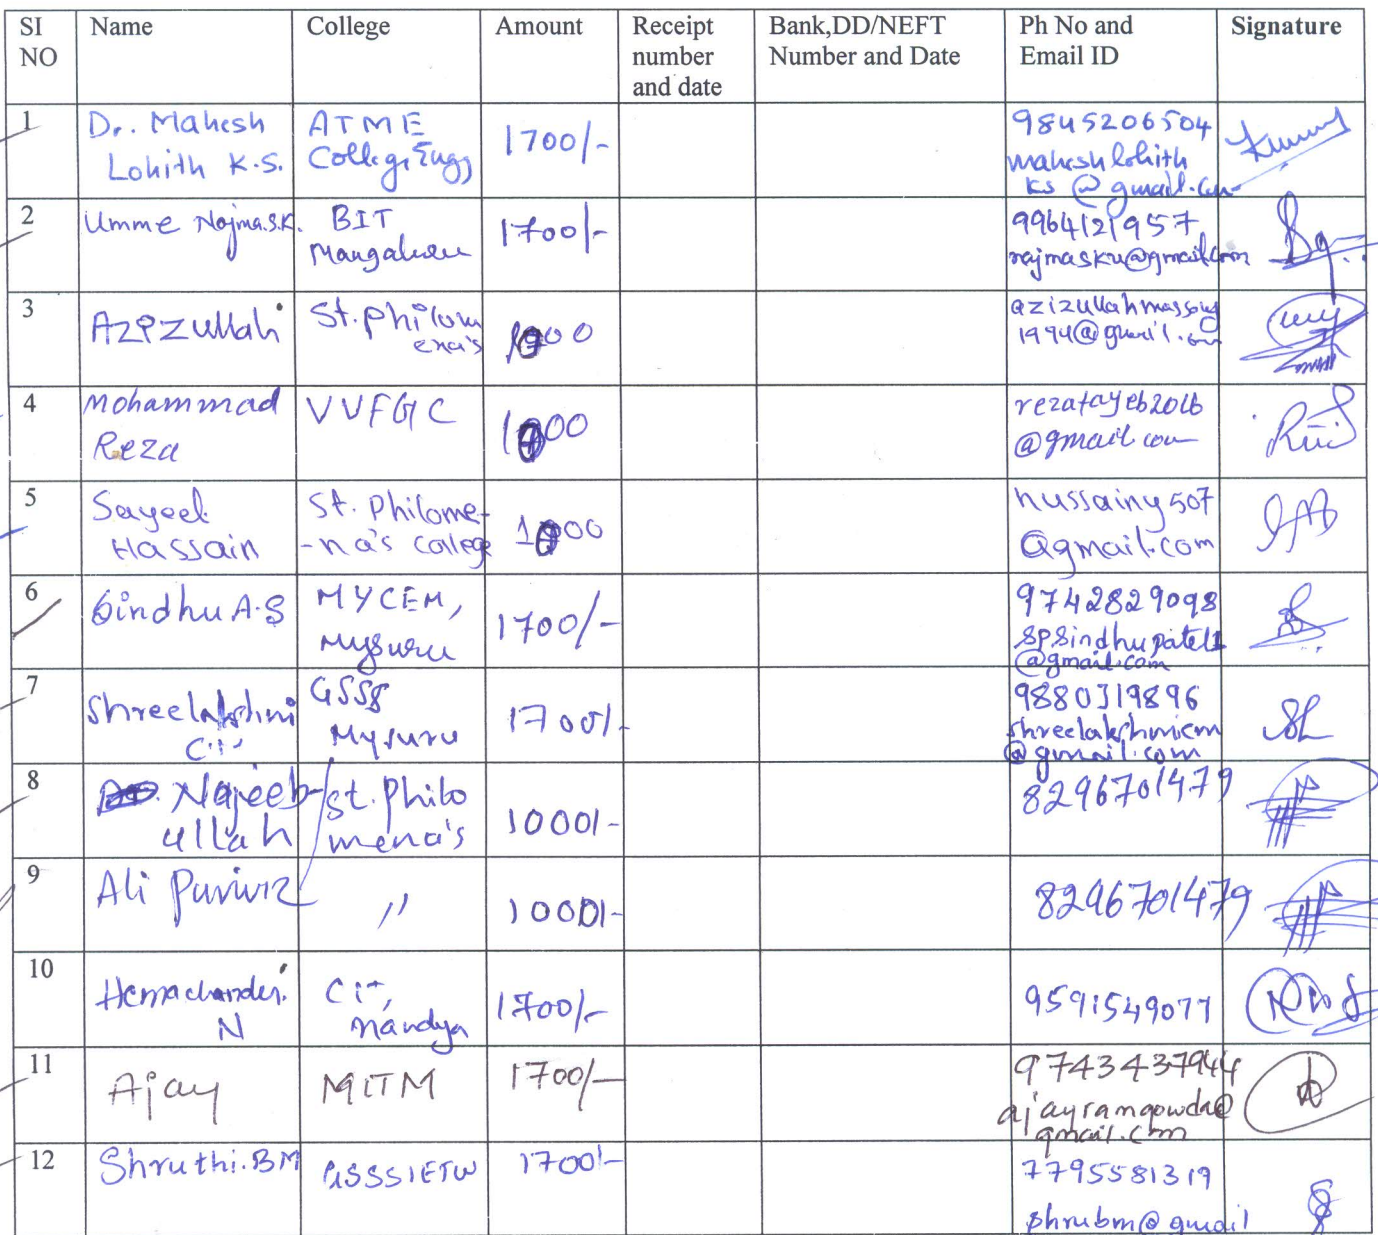 SI NO Name College Amount Receipt number and date Bank,DD/NEFT Number and Date Ph No and Email ID Signature
1 Dr. Mahesh Lohith K.S. ATME College, Engg 1700/- 9845206504 maheshlohith ks @ gmail.com
2 Umme Najma.S.K. BIT Mangaluru 1700/- 9964121957 najmasku@gmail.com
3 Azizullah St. Philom ena's 1000 azizullahmassoud 1994@gmail.com
4 Mohammad Reza VVFGC 1000 rezatayeb2016 @gmail.com
5 Sayeed Hassain St. Philome- -na's college 1000 hussainy507 @gmail.com
6 Sindhu A.S MYCEM, Mysuru 1700/- 9742829098 spsindhupatel1 @gmail.com
7 Shreelakshmi GSSS Mysuru 1700/- 9880319896 shreelakshmicm @gmail.com
8 Najeeb- ullah St. Philo mena's 1000/- 8296701479
9 Ali 〃 1000/- 8296701479
10 Hemachander. N Cit, Mandya 1700/- 9591549077
11 Ajay MITM 1700/- 9743437944 ajayramgowda@ gmail.com
12 Shruthi.BM GSSSIETW 1700/- 7795581319 shrubm@gmail